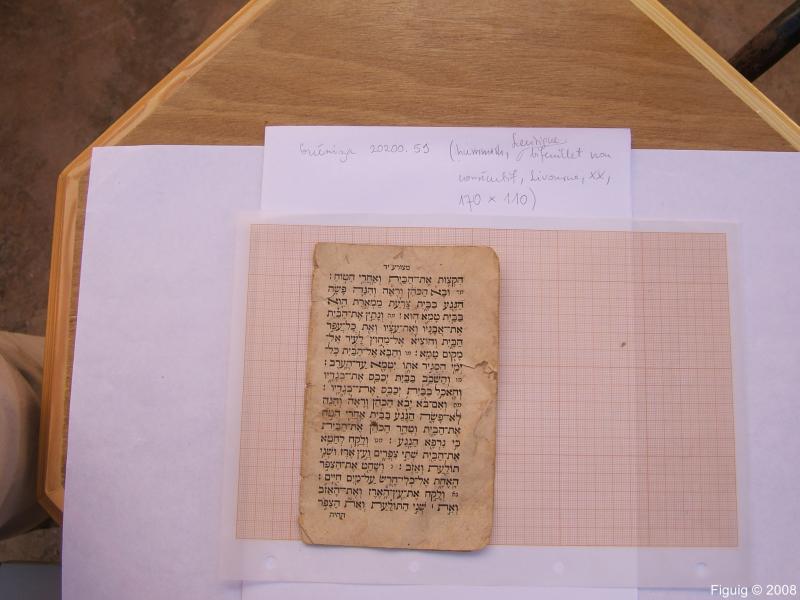 Guéniza 20200.59 (hummash, Lévitique, bifeuillet non
consécutif, Livourne, XX,
170 × 110)
מצורע יד
הקצות את־הבית ואחרי הטוח׃
ובא הכהן וראה והנה פשה
הנגע בבית צרעת ממארת הוא
בבית טמא הוא׃ מה ונתץ את־הבית
את־אבניו ואת־עציו ואת כל־עפר
הבית והוציא אל־מחוץ לעיר אל־
מקום טמא׃ מו והבא אל־הבית כל־
ימי הסגיר אתו יטמא עד־הערב׃
מז והשכב בבית יכבס את־בגדיו
והאכל בבית יכבס את־בגדיו׃
מח ואם־בא יבא הכהן וראה והנה
לא־פשה הנגע בבית אחרי הטח
את־הבית וטהר הכהן את־הבית
כי נרפא הנגע׃ מט ולקח לחטא
את־הבית שתי צפרים ועץ ארז ושני
תולעת ואזב׃ נ ושחט את־הצפר
האחת אל־כלי־חרש על־מים חיים׃
נא ולקח את־עץ־הארז ואת־האזב
ואת׀ שני התולעת ואת הצפר
החיה
Figuig © 2008